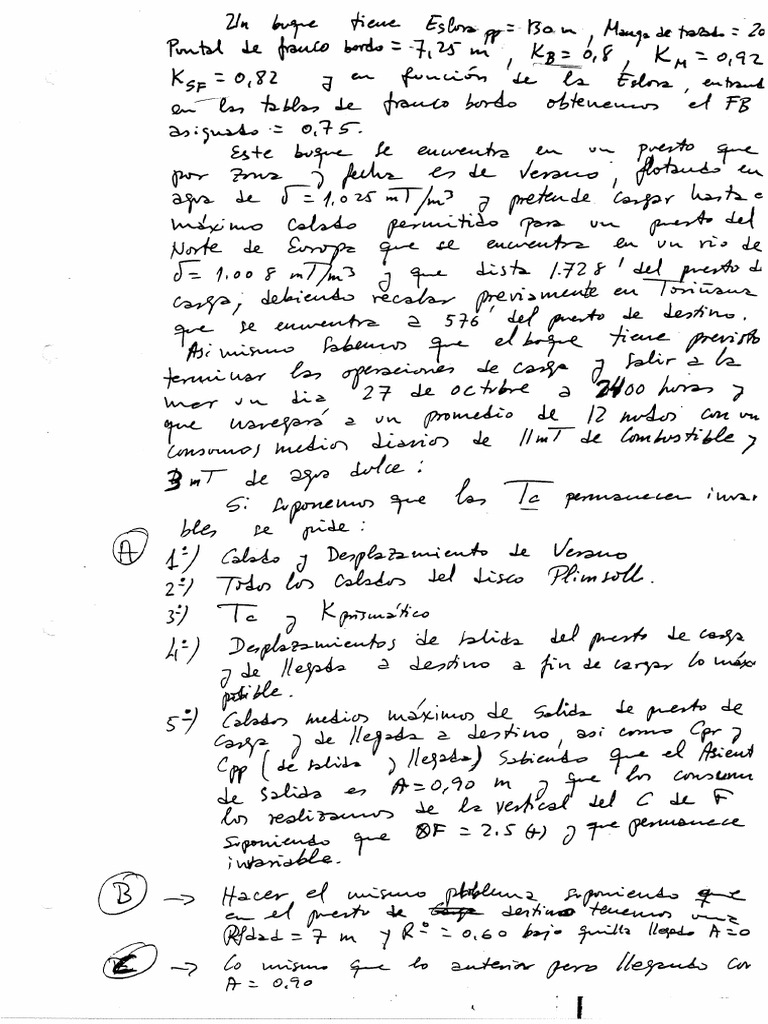 Un buque tiene Eslora pp = 130 m, Manga de trazado = 20
Puntal de franco bordo = 7,25 m, KB = 0,8, KM = 0,92
KSF = 0,82 y en función de la Eslora, entrand
en las tablas de franco bordo obtenemos el FB
asignado = 0,75.
Este buque se encuentra en un puerto que
por zona y fecha es de Verano, flotando en
agua de δ = 1.025 mT/m³ y pretende cargar hasta e
máximo calado permitido para un puerto del
Norte de Europa que se encuentra en un rio de
δ = 1.008 mT/m³ y que dista 1.728' del puerto d
carga, debiendo recalar previamente en Toriñana
que se encuentra a 576' del puerto de destino.
Asi mismo sabemos que el buque tiene previsto
terminar las operaciones de carga y salir a la
mar un dia 27 de octubre a 2400 horas y
que navegará a un promedio de 12 nudos con un
consumos medios diarios de 11 mT de Combustible y
3 mT de agua dulce:
Si suponemos que las Tc permanecen invar
bles se pide:
A
1º-) Calado y Desplazamiento de Verano
2º-) Todos los Calados del disco Plimsoll.
3º-) Tc y K prismático
4º-) Desplazamientos de salida del puerto de carga
y de llegada a destino a fin de cargar lo máx
posible.
5º-) Calados medios máximos de salida de puerto de
carga y de llegada a destino, asi como Cpr y
Cpp (de salida y llegada) Sabiendo que el Asient
de salida es A = 0,90 m y que los consum
los realizamos de la vertical del C de F
suponiendo que ⊗F = 2.5 (+) y que permanece
invariable.
B → Hacer el mismo problema suponiendo que
en el puerto de destino tenemos una
Rfdad = 7 m y Rº = 0.60 bajo quilla llegado A=0
C → Lo mismo que lo anterior pero llegando con
A = 0.90